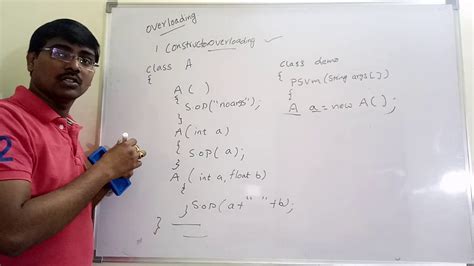 overloading
1. Constructor overloading ✓
class A
{
A( )
{
S.O.P("noargs");
}
A(int a)
{
S.O.P(a);
}
A(int a, float b)
{
S.O.P(a+" "+b);
}
}
class demo
{
PSVm(String args[])
{
A a=new A();
2